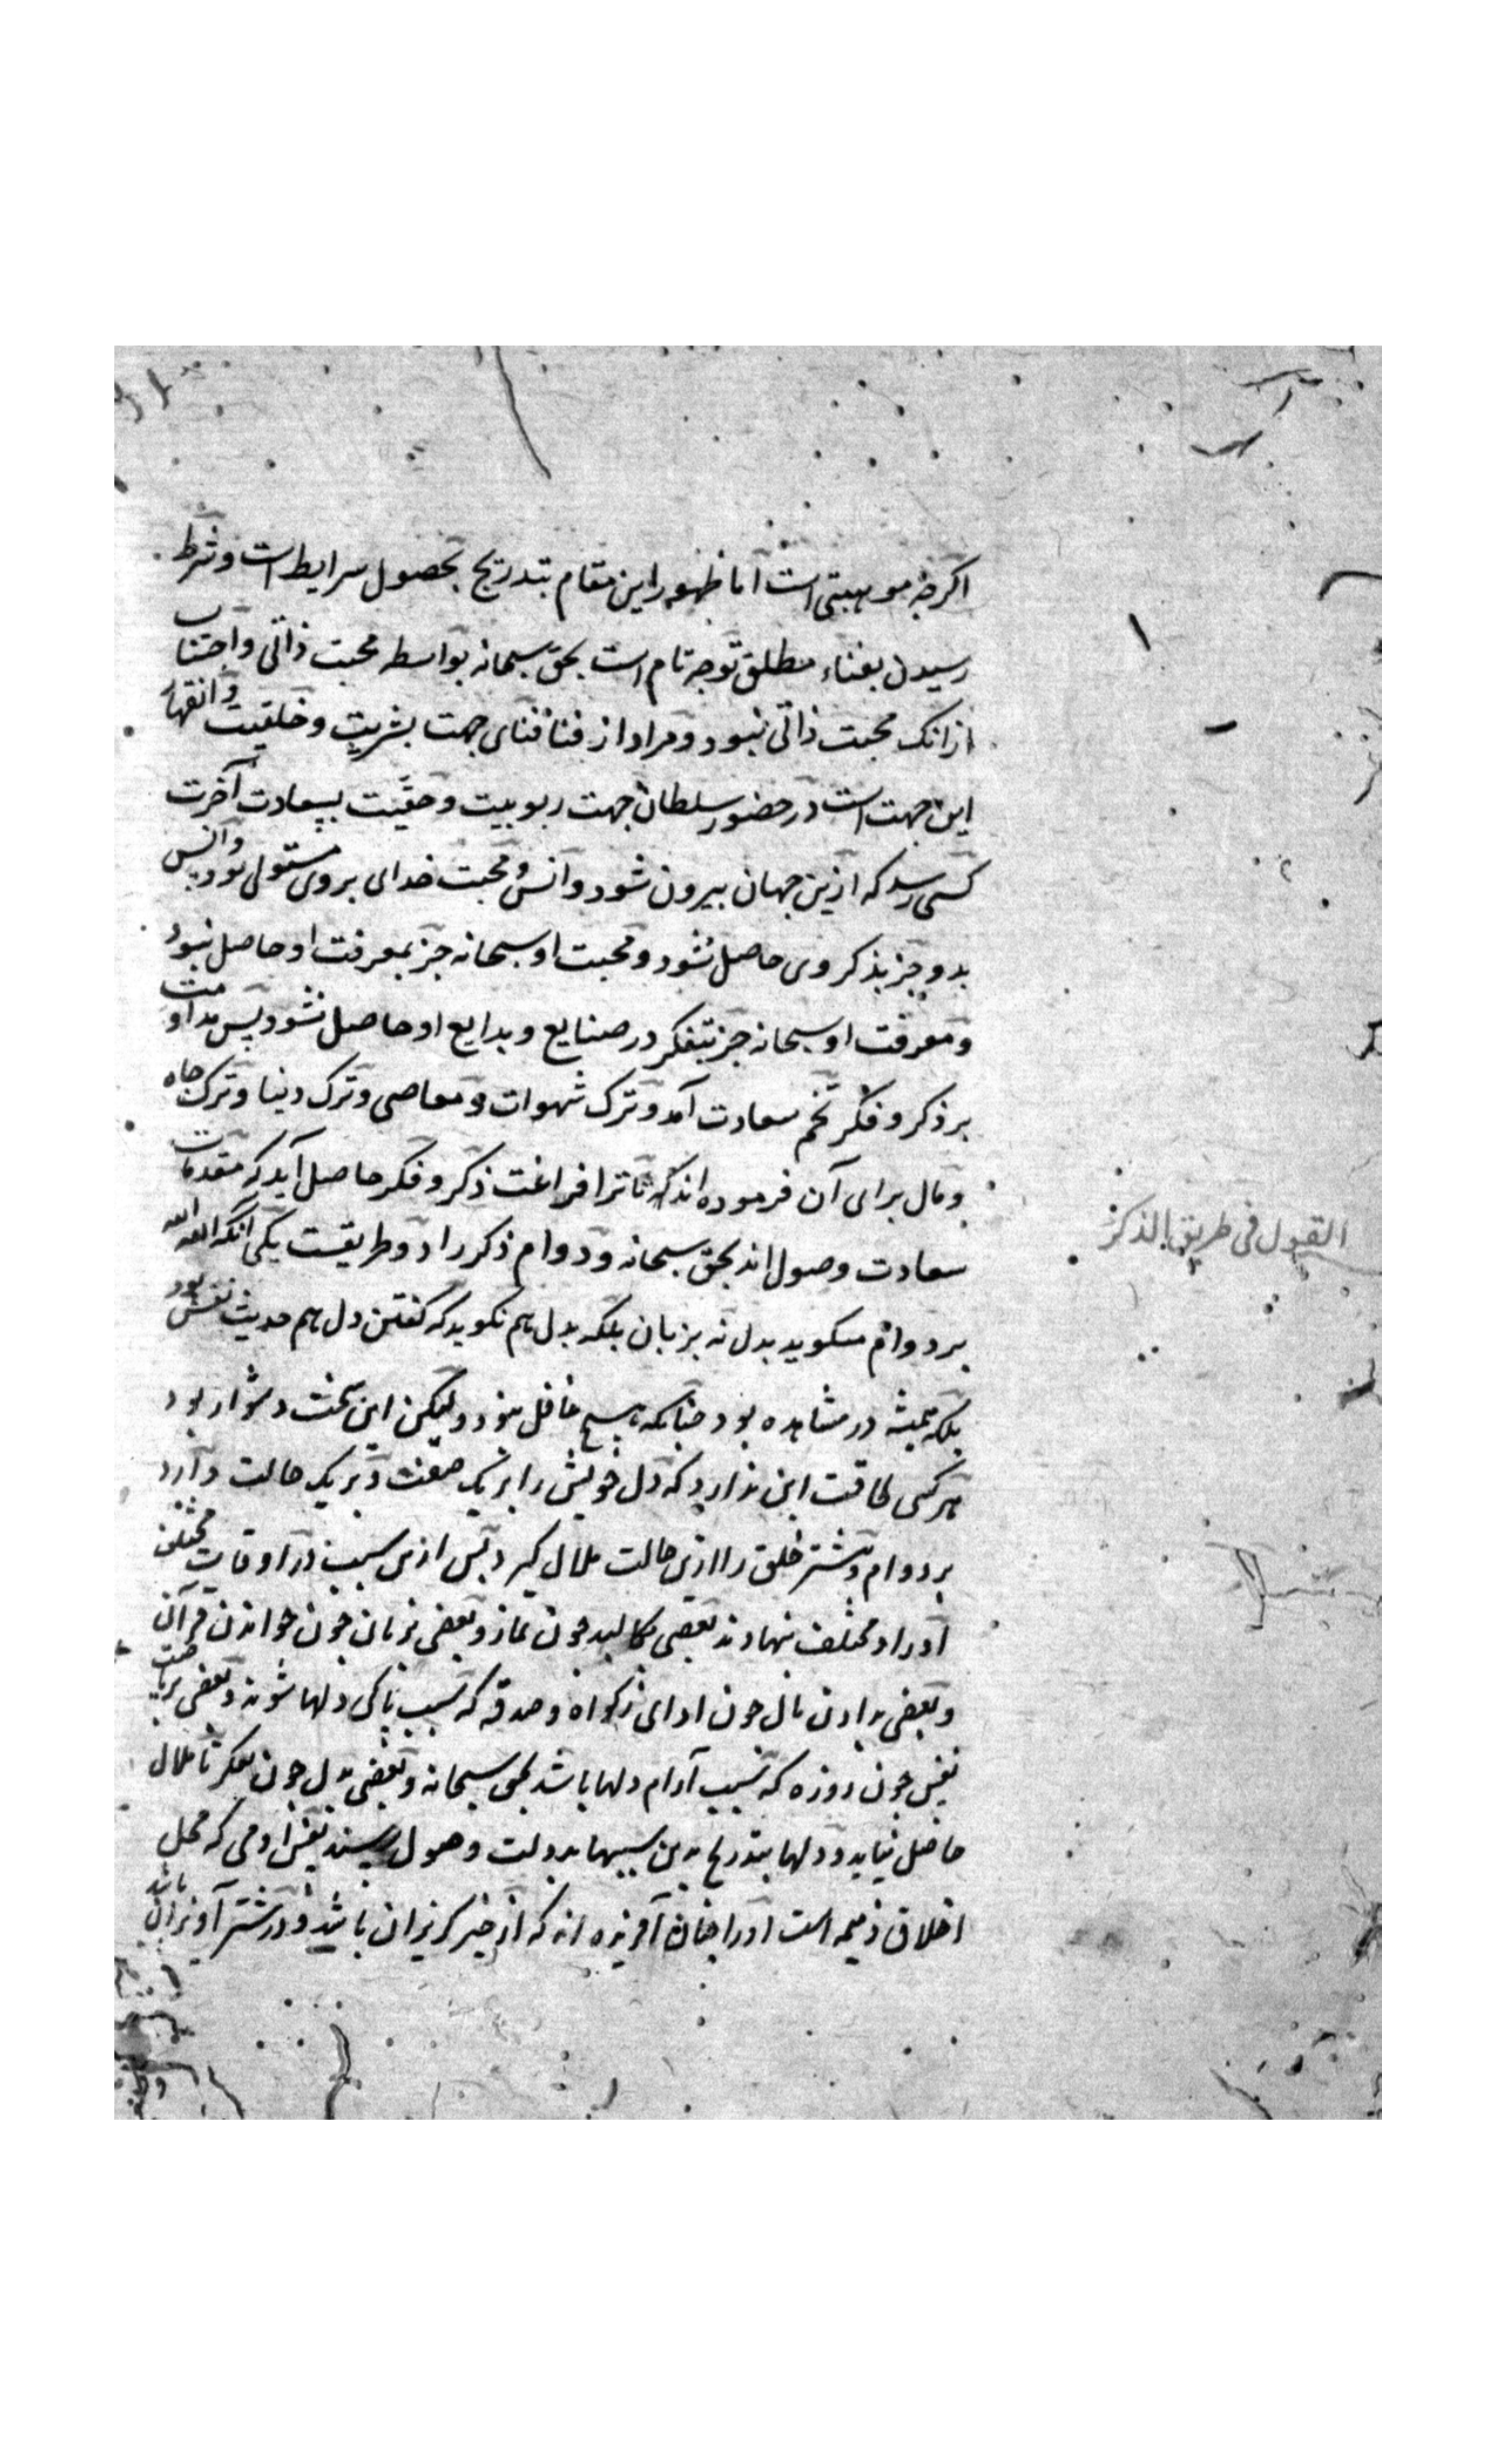 اکرچه موهبتی است اما ظهور این مقام بتدریج بحصول شرایط است و شرط
رسیدن بفناء مطلق توجه تام است بحق سبحانه بواسطه محبت ذاتی و اجتناب
ازانک محبت ذاتی نبود و مراد از فنا فنای جهت بشریت و خلقیت و انقهار
این جهت است در حضور سلطان جهت ربوبیت و حقیت بسعادت آخرت
کسی رسد که ازین جهان بیرون شود و انس و محبت خدای بروی مستولی بود پس وانس
بدو جز بذکر وی حاصل نشود و محبت او سبحانه جز بمعرفت او حاصل نبود
و معرفت او سبحانه جز بتفکر در صنایع و بدایع او حاصل نشود پس مداومت
بر ذکر و فکر تخم سعادت آمد و ترک شهوات و معاصی و ترک دنیا و ترک جاه
و مال برای آن فرموده اند که تا ترا فراغت ذکر و فکر حاصل آید که مقدمات
سعادت وصول اند بحق سبحانه و دوام ذکر را دو طریقست یکی انکه الله الله
القول فی طریق الذکر
بر دوام میکوید بدل نه بزبان بلکه بدل هم نکوید که کفتن دل هم حدیث نفس بود
بلکه همیشه در مشاهده بود چنانکه هیچ غافل نبود ولیکن این سخت دشوار بود
هر کسی طاقت این ندارد که دل خویش را بریک صفت و بریک حالت دارد
بر دوام و بیشتر خلق را ازین حالت ملال کیرد پس ازین سبب در اوقات مختلف
اوراد مختلف نهادند بعضی بکالبد چون نماز و بعضی بزبان چون خواندن قرآن
و بعضی بدادن مال چون ادای زکواة و صدقه که سبب پاکی دلها شوند و بعضی بریاضت
نفس چون روزه که سبب آرام دلها باشد بحق سبحانه و بعضی بدل چون تفکر تا ملال
حاصل نیاید و دلها بتدریج بدین سببها بدولت وصول رسند نفس ادمی که محل
اخلاق ذمیمه است او را چنان آفریده اند که از خیر کریزان باشد و در شر آویزان باشد